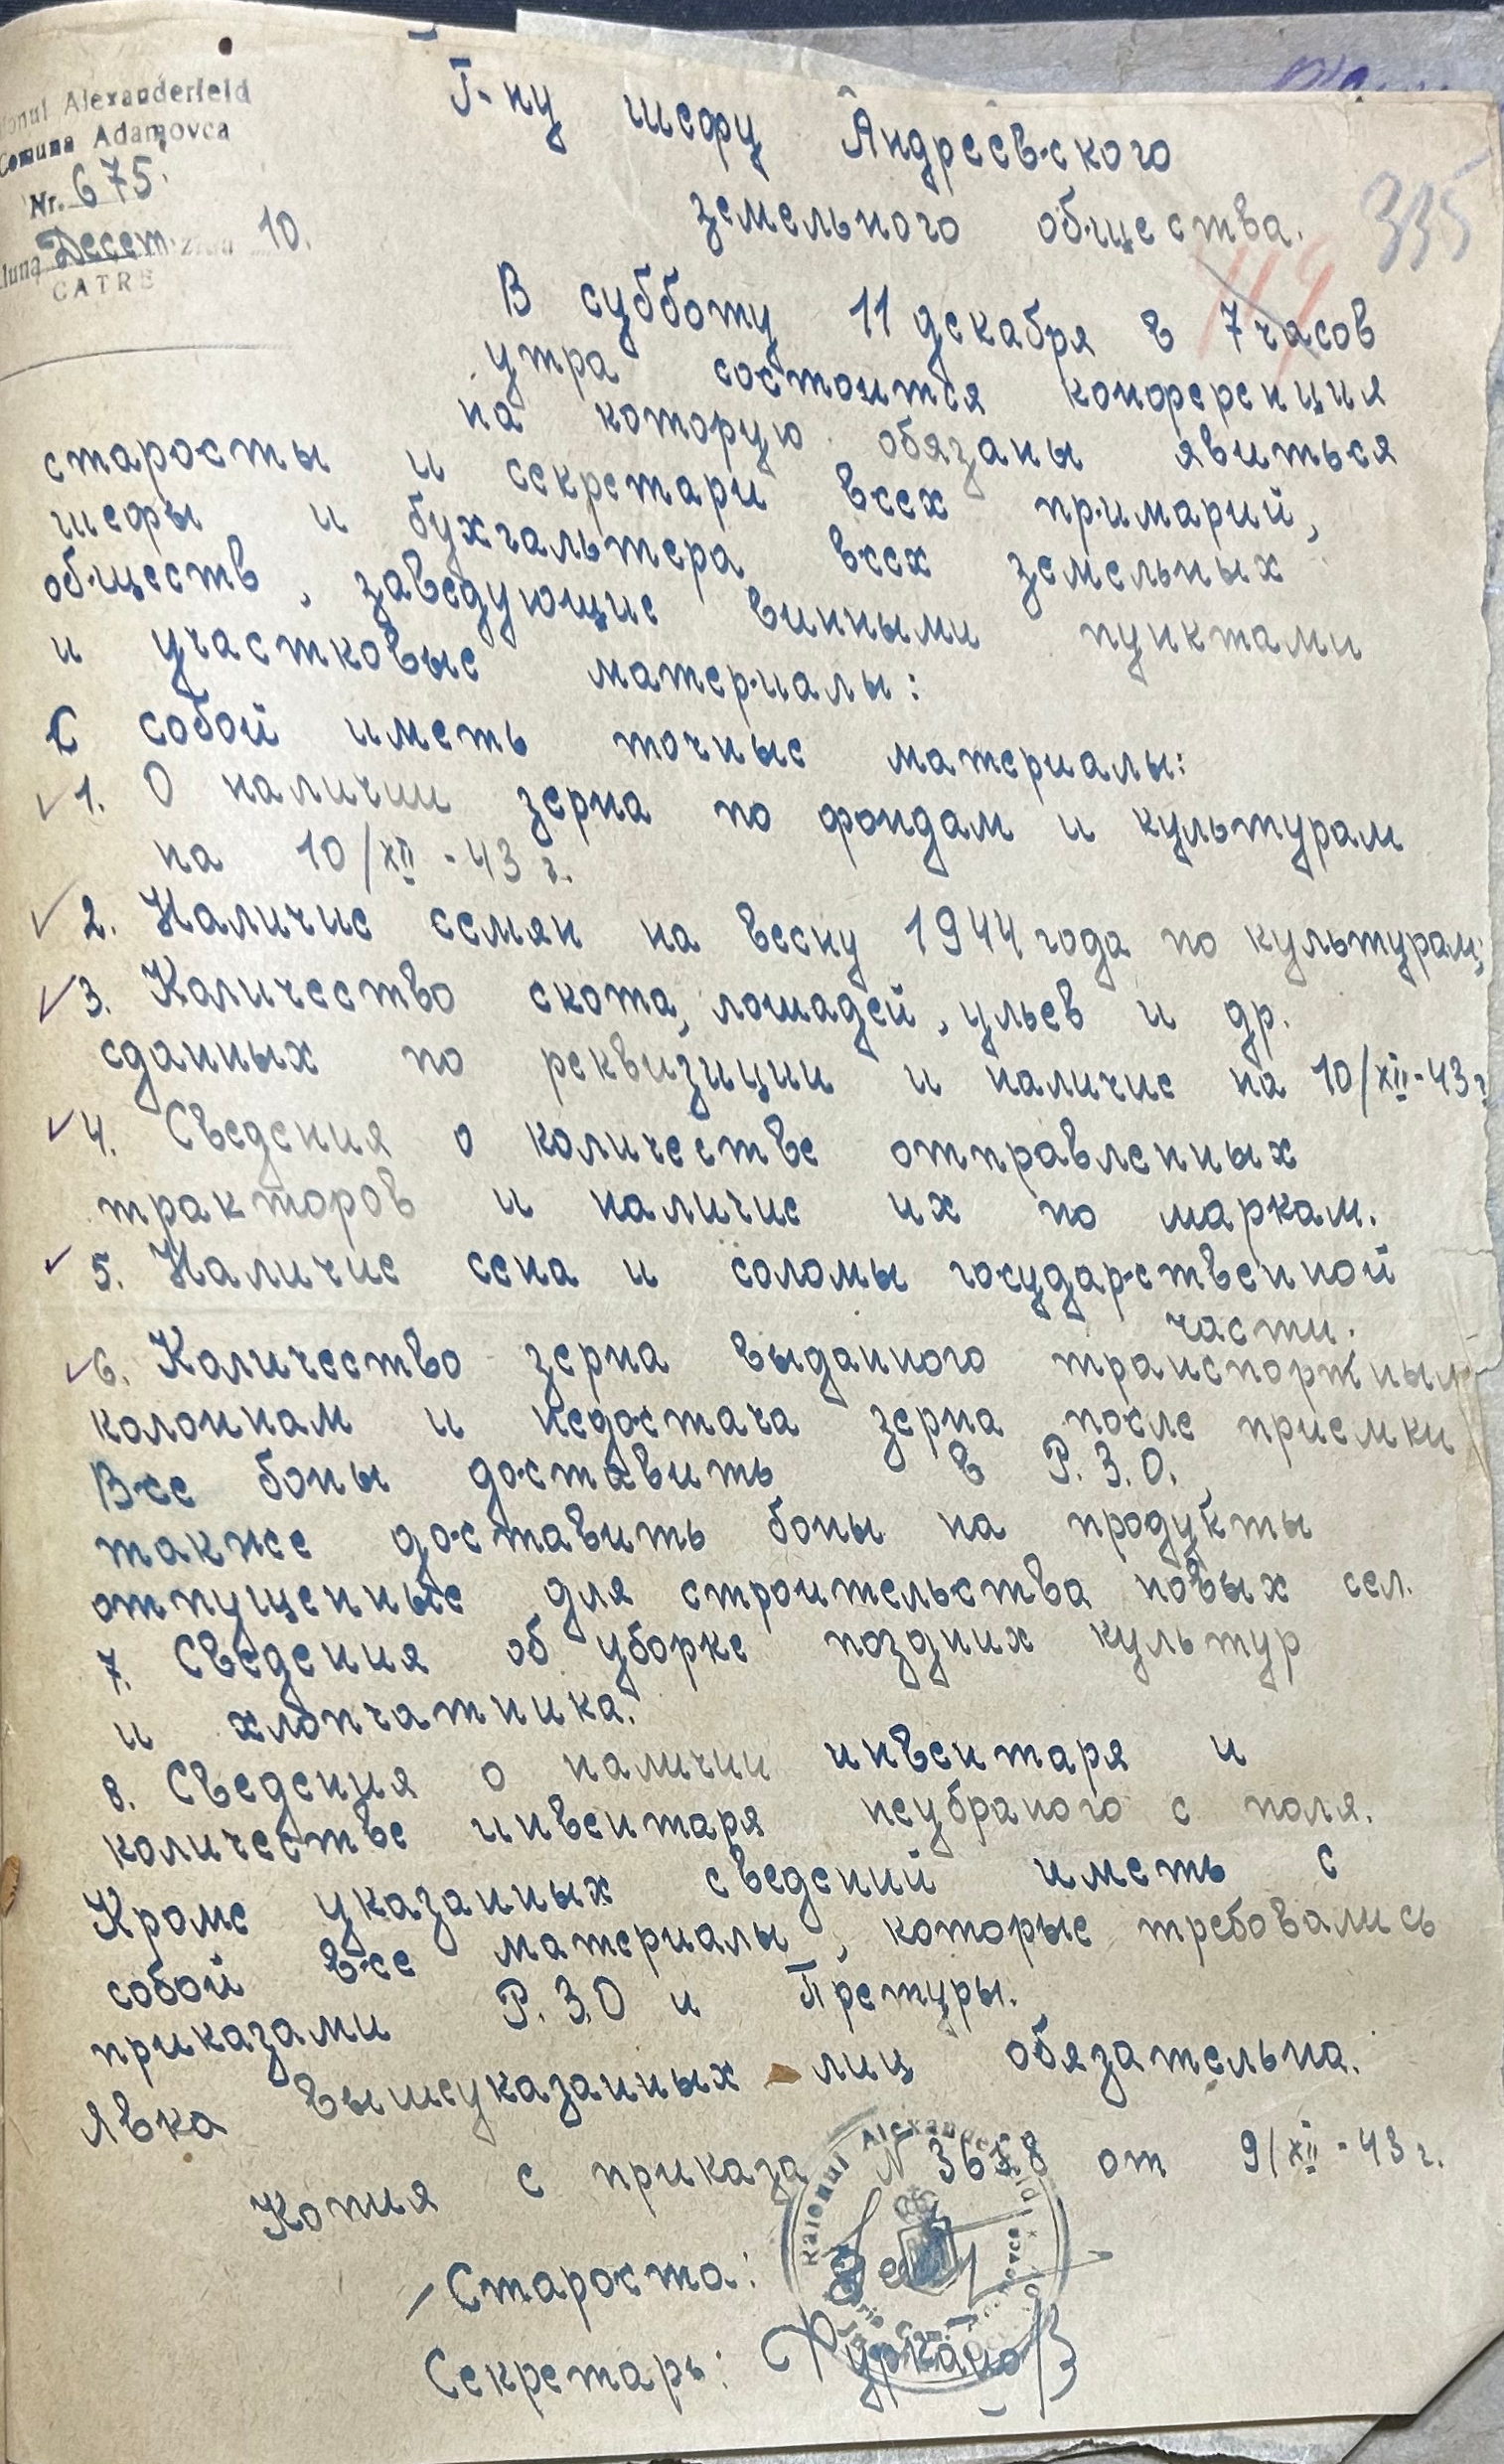 Raionul Alexanderfeld
Comuna Adamovca
Nr. 675.
luna Decem. ziua 10.
CATRE
Г-ну шефу Андреев-ского
земельного общества.
335
119
В субботу 11 декабря в 7 часов
утра состоится конференция
на которую обязаны явиться
старосты и секретари всех примарий,
шефы и бухгальтера всех земельных
обществ, заведующие винными пунктами
и участковые материалы:
С собой иметь точные материалы:
1. О наличии зерна по фондам и культурам
на 10/XII-43 г.
2. Наличие семян на весну 1944 года по культурам;
3. Количество скота, лошадей, ульев и др.
сданных по реквизиции и наличие на 10/XII-43 г.
4. Сведения о количестве отправленных
тракторов и наличие их по маркам.
5. Наличие сена и соломы государственной
части.
6. Количество зерна выданного транспортным
колоннам и недостача зерна после приемки
Все боны доставить в Р.З.О.
также доставить боны на продукты
отпущенные для строительства новых сел.
7. Сведения об уборке поздних культур
и хлопчатника.
8. Сведения о наличии инвентаря и
количестве инвентаря неубраного с поля.
Кроме указанных сведений иметь с
собой все материалы, которые требовались
приказами Р.З.О и Претуры.
Явка вышеуказанных лиц обязательна.
Копия с приказа N 3658 от 9/XII-43 г.
Староста:
Секретарь:
Raionul Alexanderfeld